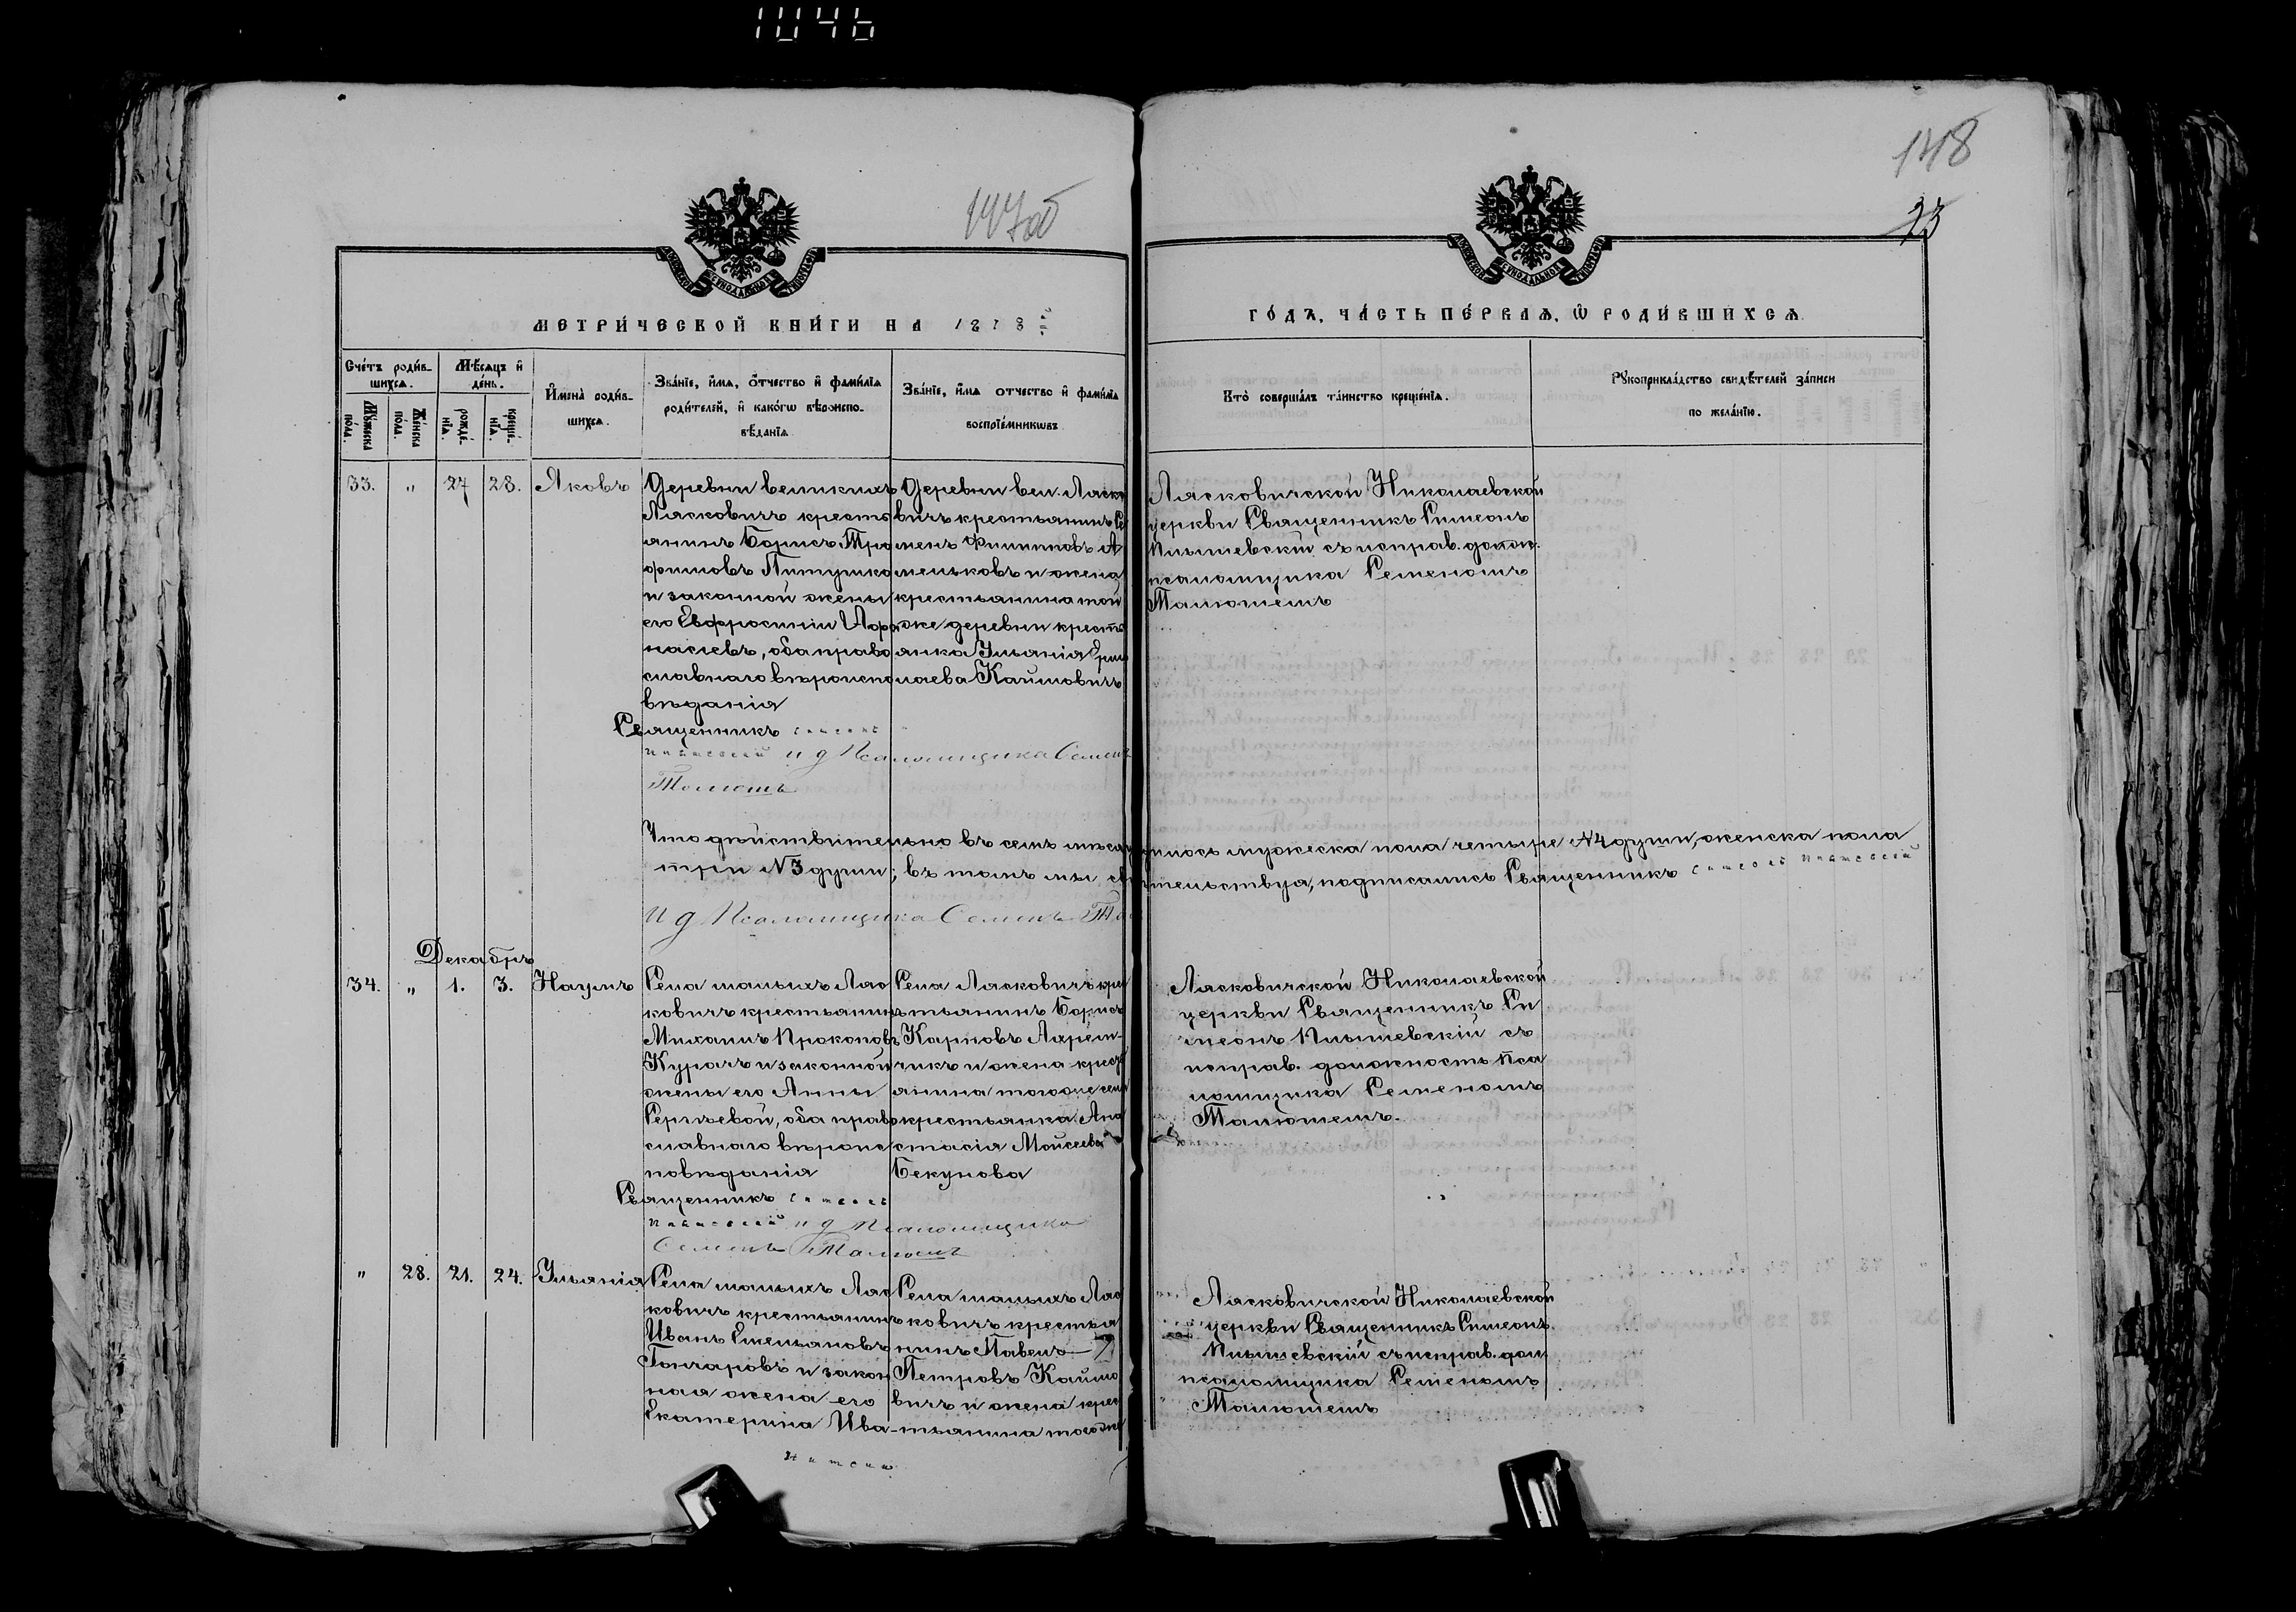 1046
147об
148
23
МЕТРИ́ЧЕСКОЙ КНИ́ГИ НА 1878
ГО́ДЪ, ЧА́СТЬ ПЕ́РВАЯ, Ѡ РОДИ́ВШИХСЯ.
Сче́тъ роди́в-
шихся.
Мѣ́сяцъ и
де́нь.
Му́жеска
по́ла.
Же́нска
пола.
рожде́-
нїя.
креще́-
нїя.
И҆мена̀ роди́в-
шихся.
Зва́нїе, и҆́мя, о҆́тчество и҆ фами́лїя
роди́телей, и҆ како́гѡ вѣроиспо-
вѣ́данїя
Зва́нїе, и҆́мя отчество и҆ фами́лїя
воспрїе́мникѡвъ
Кто̀ соверша́лъ та́инство креще́нїя.
Рукоприкла́дство свидѣ́телей за́писи
по жела́нїю.
33. „ 27 28. Яковъ
Деревни великихъ
Лясковичъ кресть
янинъ Борисъ Тро
фимовъ Питушко
и законной жены
его Евфросиніи
насіевъ, оба право
славнаго вѣроиспо
вѣданія
Деревни вел. Ляско
вичъ крестьянинъ Се
менъ Филиповъ А
меньковъ и жена
крестьянина той
же деревни кресть
янка Ульянія
лаева Каймовичъ
Лясковичской Николаевской
церкви Священникъ Симеонъ
съ исправ. долж.
псаломщика Семеномъ
Священникъ
и д Псаломщика Семенъ
Что дѣйствительно въ семъ мѣся
лось мужеска пола четыре №4 души, женска пола
три №3 души; въ томъ мы сви
тельствуя, подписались Священникъ
И д Псаломщика Семенъ
Декабрь
34. „ 1. 3. Наумъ
Села малыхъ Ляс
ковичъ крестьянинъ
Михаилъ Прокоповъ
Курачъ и законной
жены его Анны
Сергѣевой, оба право
славнаго вѣроис
повѣданія
Села Лясковичъ кре
стьянинъ Борисъ
Карповъ Ахрем-
чикъ и жена крест
янина того же села
крестьянка Ана
стасія Моисеева
Бекунова
Лясковичской Николаевской
церкви Священникъ Си
меонъ съ
исправ. должность пса
ломщика Семеномъ
Священникъ
и д Псаломщика
Семенъ
„ 28. 21. 24. Ульянія
Села малыхъ Ляс
ковичъ крестьянинъ
Иванъ Емельяновъ
Гончаровъ и закон
ная жена его
Екатерина Ива-
Села малыхъ Ляс
ковичъ крестья
нинъ Павелъ
Петровъ Каймо
вичъ и жена крес
тьянина того же
Лясковичской Николаевской
церкви Священникъ Симеонъ
съ исправ. дол
псаломщика Семеномъ